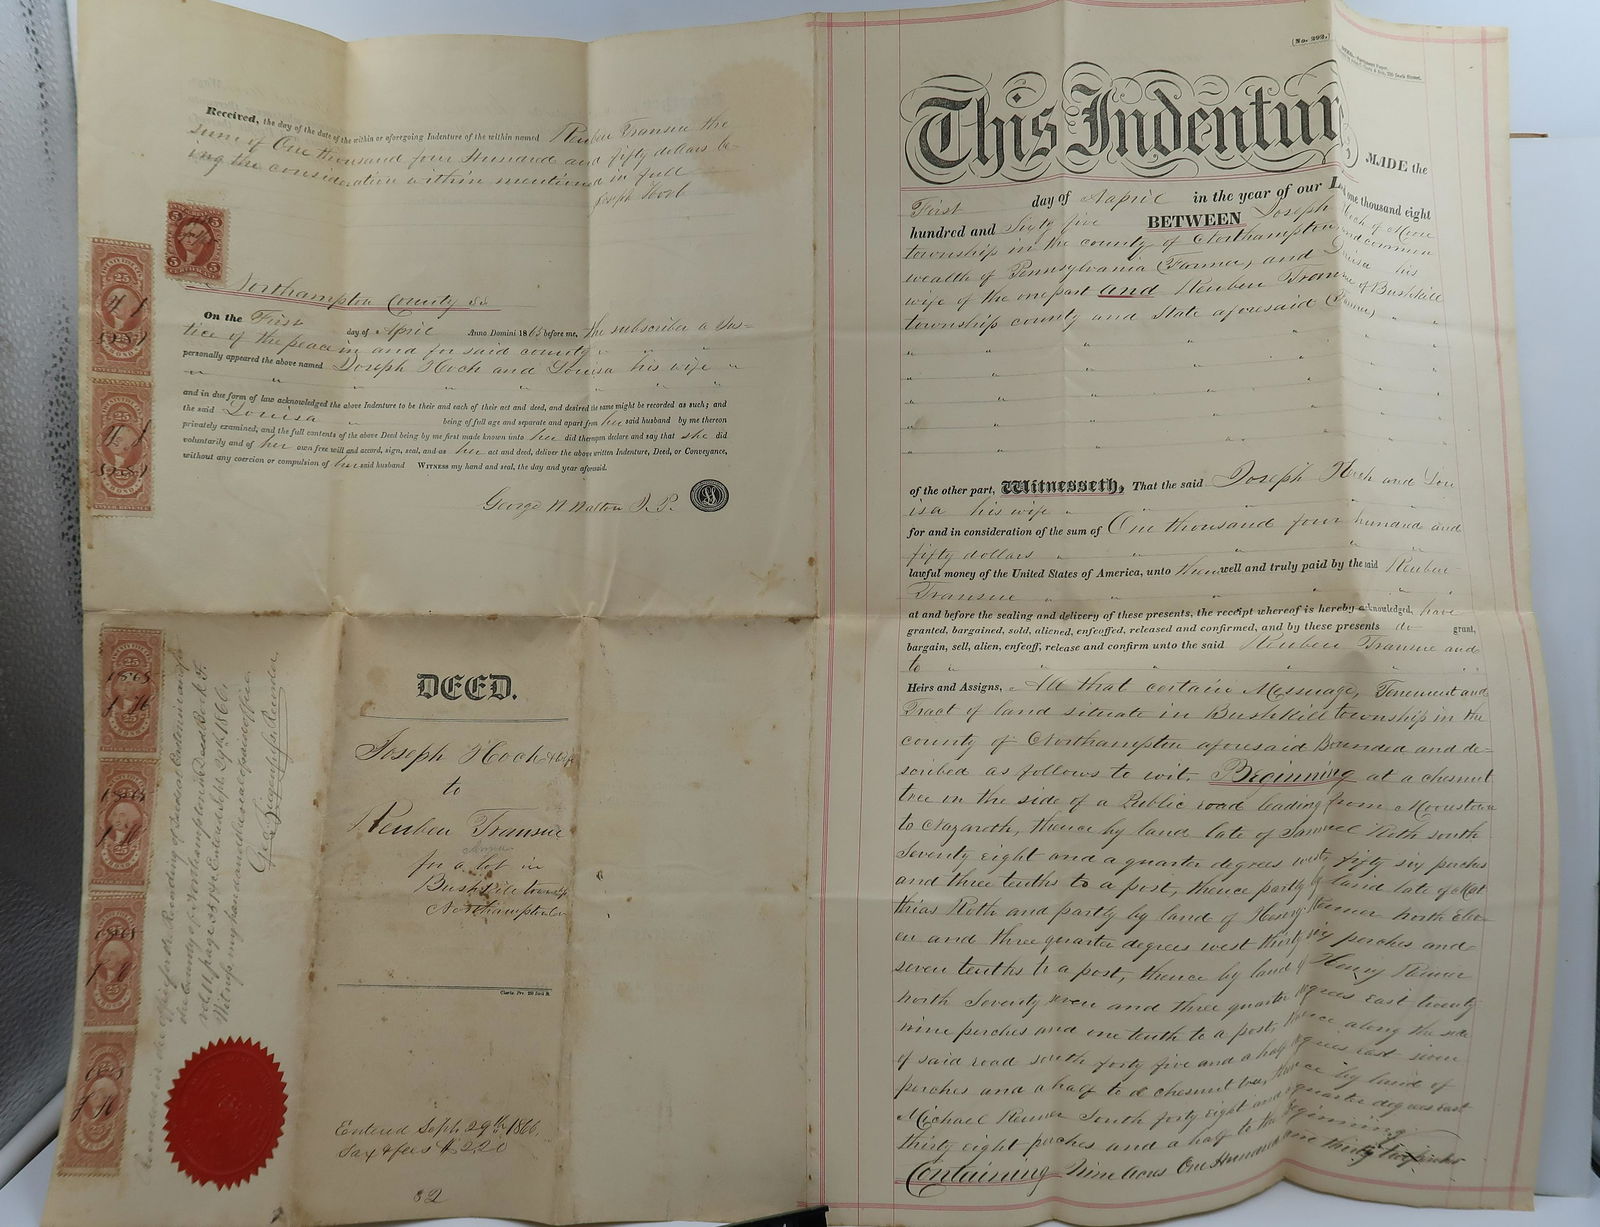 Received, the day of the date of the within or aforegoing Indenture of the within named Reuben Transue the
sum of One thousand four Hundred and fifty dollars be-
ing the consideration within mentioned in full
Joseph Hoch
Northampton County ss
On the First day of April Anno Domini 1865 before me, the subscriber a Jus-
tice of the peace in and for said county
personally appeared the above named Joseph Hoch and Louisa his wife
and in due form of law acknowledged the above Indenture to be their and each of their act and deed, and desired the same might be recorded as such; and
the said Louisa being of full age and separate and apart from her said husband by me thereon
privately examined, and the full contents of the above Deed being by me first made known unto her did thereupon declare and say that she did
voluntarily and of her own free will and accord, sign, seal, and as her act and deed, deliver the above written Indenture, Deed, or Conveyance,
without any coercion or compulsion of her said husband Witness my hand and seal, the day and year aforesaid.
George W Walton J. P.
5 5
CERTIFICATE
25
25
25
1865
25
25
25
in the office for the Recording of Deeds at Easton in and for
the County of Northampton in Deed Book F.
vol. 11 page Entered Sept. 29th 1866.
Witness my hand and the seal of said office
Recorder
DEED.
Joseph Hoch & wife
to
Reuben Transue
for a lot in
Bushkill township
Northampton Co
Entered Sept. 29th 1866,
Tax & fees $2.20
32
[No. 292.]
This Indenture MADE the
First day of Aapril in the year of our Lord one thousand eight
hundred and Sixty five BETWEEN Joseph Hoch of Moore
township in the county of Northampton and common
wealth of Pennsylvania (Farmer) and Louisa his
wife of the one part and Reuben Transue of Bushkill
township county and State aforesaid (Farmer)
of the other part, Witnesseth, That the said Joseph Hoch and Lou
isa his wife
for and in consideration of the sum of One thousand four hundred and
fifty dollars
lawful money of the United States of America, unto them well and truly paid by the said Reuben
Transue
at and before the sealing and delivery of these presents, the receipt whereof is hereby acknowledged, have
granted, bargained, sold, aliened, enfeoffed, released and confirmed, and by these presents do grant,
bargain, sell, alien, enfeoff, release and confirm unto the said Reuben Transue and
to
Heirs and Assigns, All that certain Messuage, Tenement and
Tract of land situate in Bushkill township in the
county of Northampton aforesaid Bounded and de-
scribed as follows to wit, Beginning at a chesnut
tree on the side of a Public road leading from Moorestown
to Nazareth, thence by land late of Samuel Roth south
Seventy eight and a quarter degrees west, fifty six perches
and three tenths to a post, thence partly by land late of Mat
thias Roth and partly by land of Henry Remer North Elev-
en and three quarter degrees west thirty six perches and
seven tenths to a post, thence by land of Henry Remer
north Seventy seven and three quarter degrees East twenty
nine perches and one tenth to a post, thence along the side
of said road south forty five and a half degrees east seven
perches and a half to a chesnut tree, thence by land of
Michael Remer South forty eight and a quarter degrees east
thirty eight perches and a half to the Beginning
Containing Nine Acres One Hundred and thirty two perches